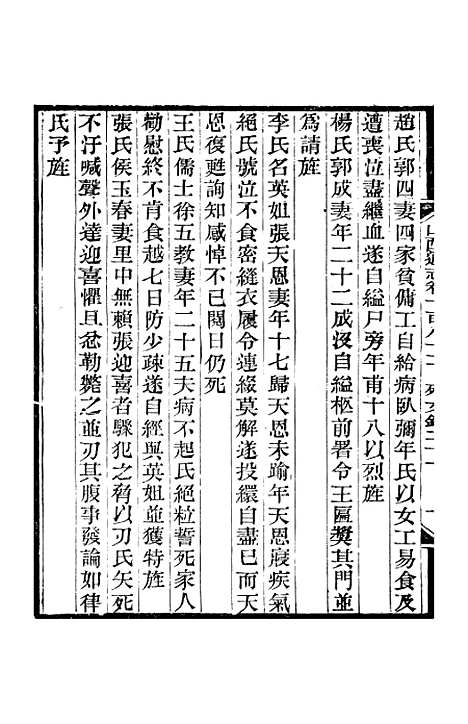 趙氏郭四妻四家貧傭工自給病臥彌年氏以女工易食及
遭喪泣盡繼血遂自縊尸旁年甫十八以烈旌
楊氏郭成妻年二十二成沒自縊柩前署令王匾獎其門並
爲請旌
李氏名英姐張天恩妻年十七歸天恩未踰年天恩寢疾氣
絕氏號泣不食密縫衣履令連綴莫解遂投繯自盡巳而天
恩復甦詢知感悼不已閱日仍死
王氏儒士徐五教妻年二十五夫病不起氏絕粒誓死家人
勸慰終不肯食越七日防少疎遂自經與英姐並獲特旌
張氏侯玉春妻里中無賴張迎喜者驟犯之脅以刃氏矢死
不汙喊聲外達迎喜懼且忿勒斃之並刃其腹事發論如律
氏予旌